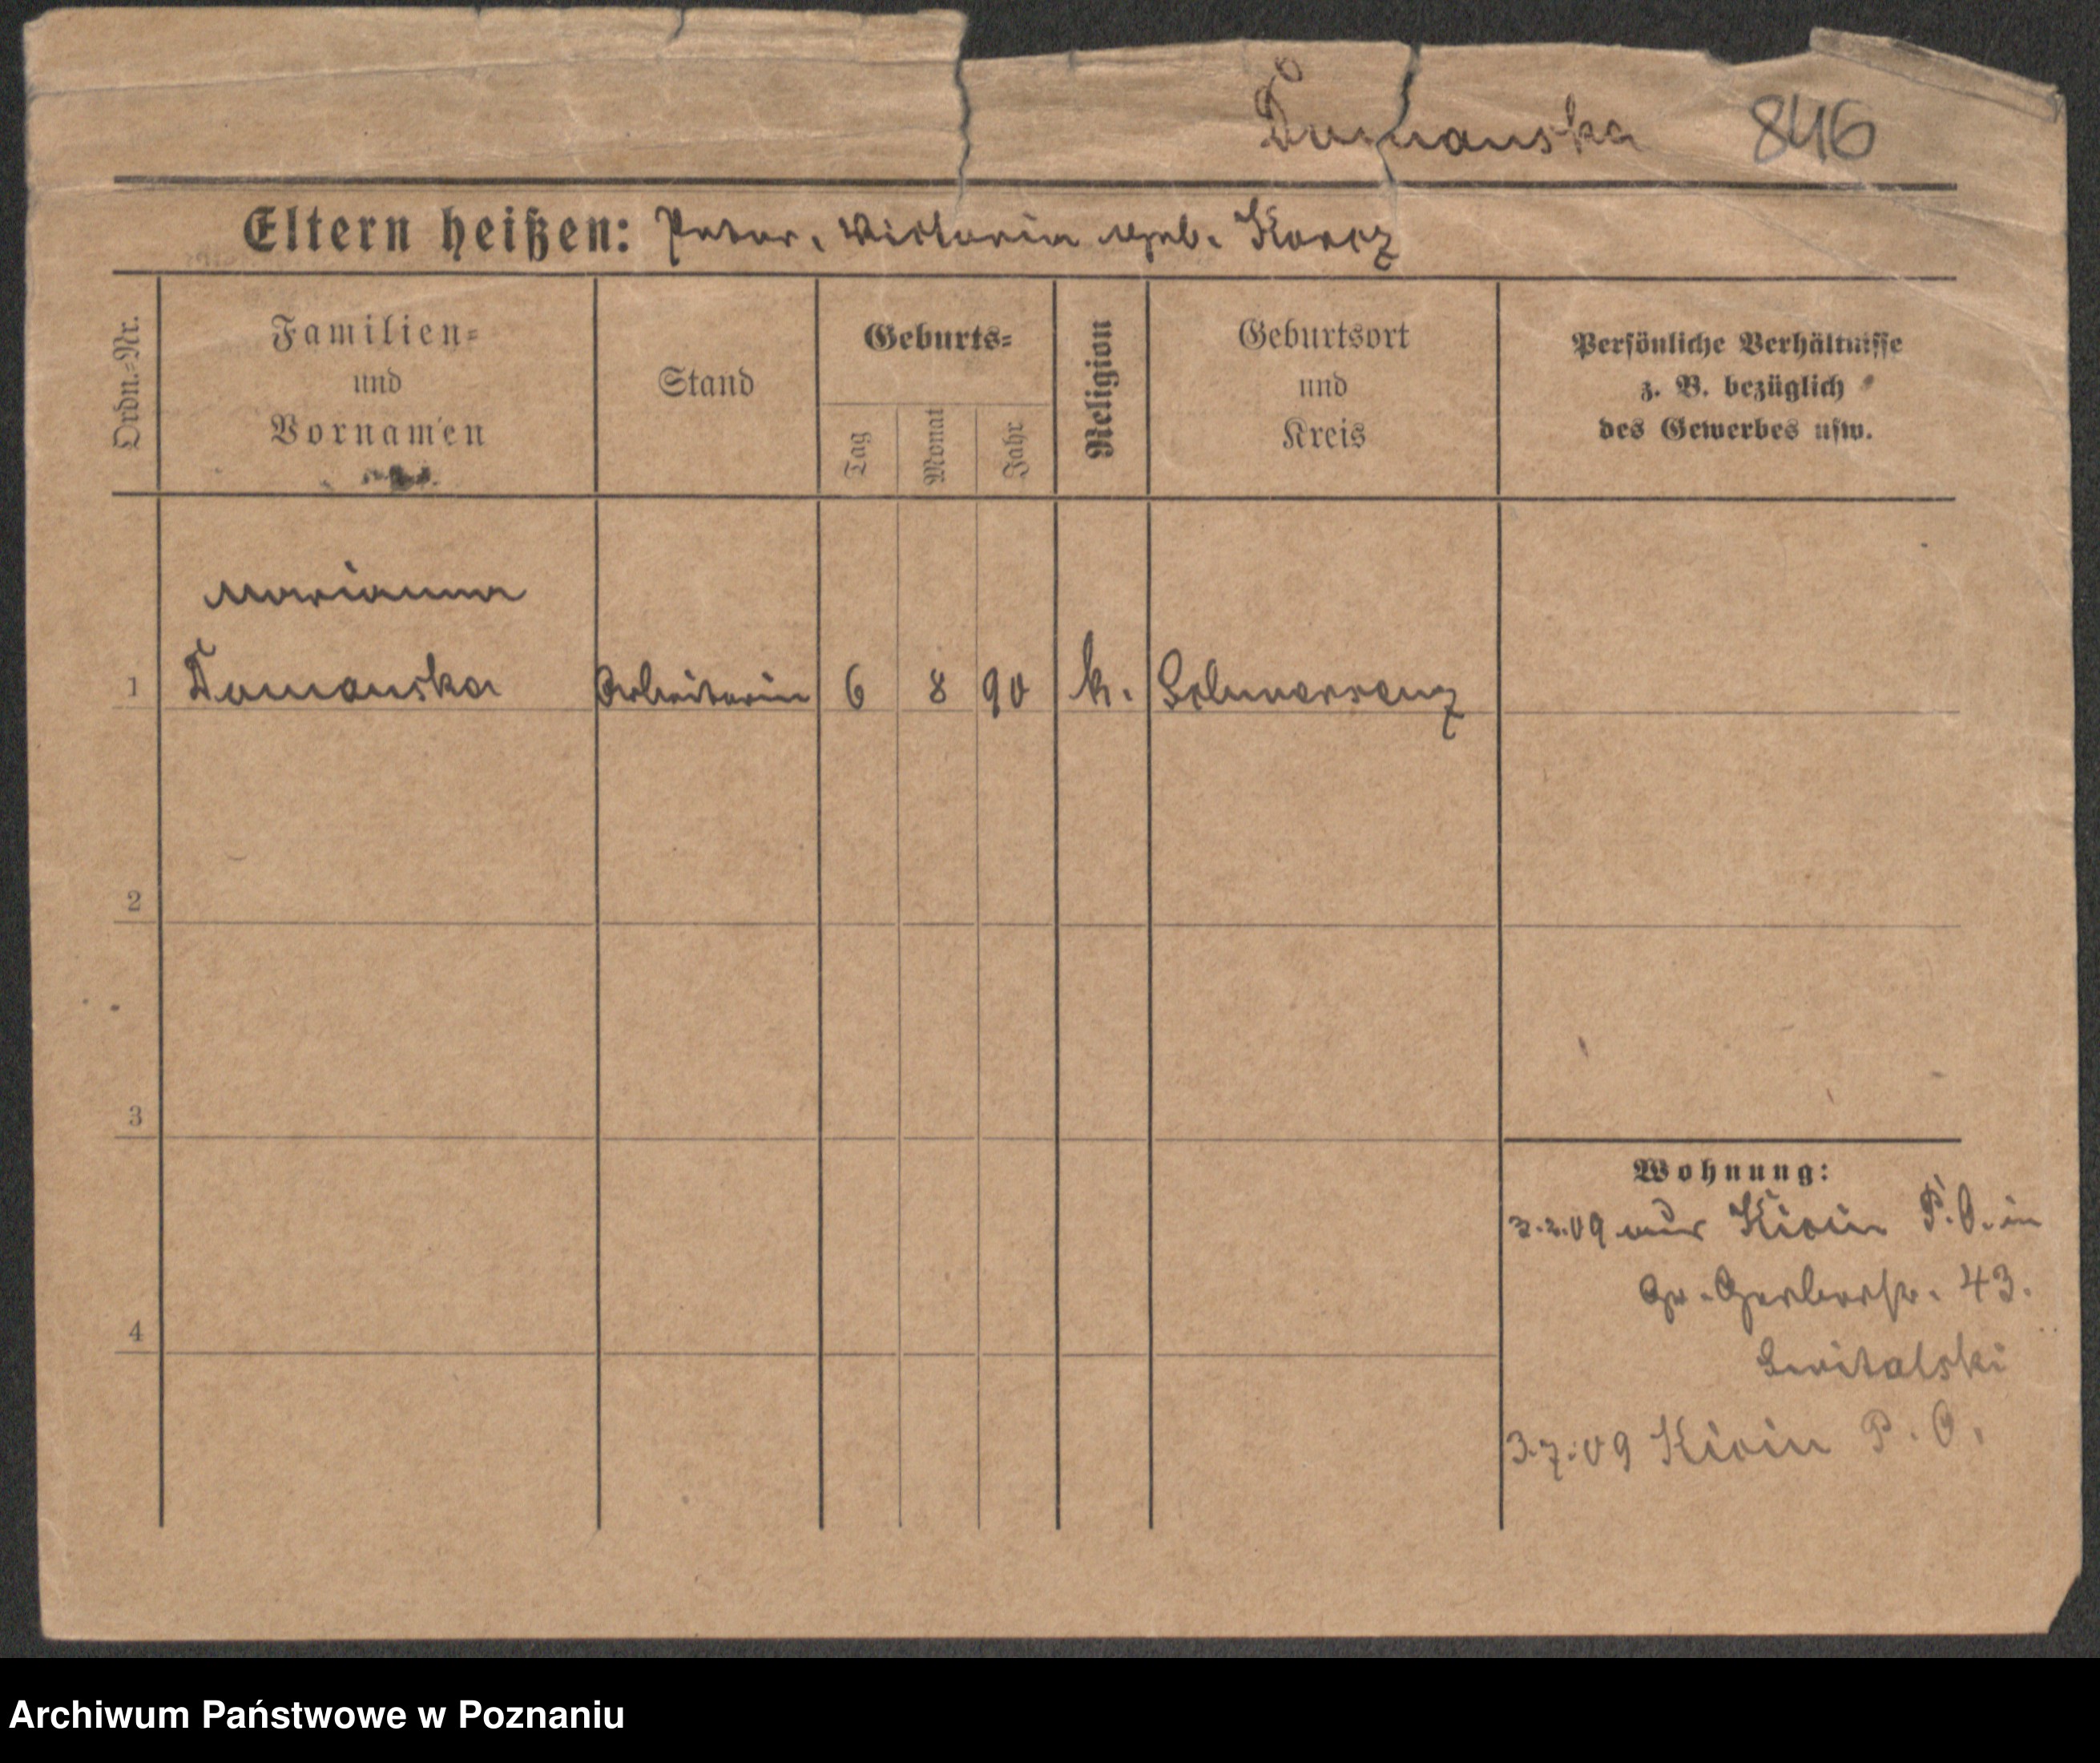 Tomanska 846
Eltern heißen: Peter, Victoria geb. Korcz
Ordn.-Nr.
Familien-
und
Vornamen
Stand
Geburts-
Tag
Monat
Jahr
Religion
Geburtsort
und
Kreis
Persönliche Verhältnisse
z. B. bezüglich
des Gewerbes usw.
Marianna
1 Tomanska Arbeiterin 6 8 90 k. Schwersenz
2
3
4
Wohnung:
2.2.09 aus Kicin P.O. in
Gr. Gerberstr. 43.
Switalski
3.7.09 Kicin P.O.
Archiwum Państwowe w Poznaniu